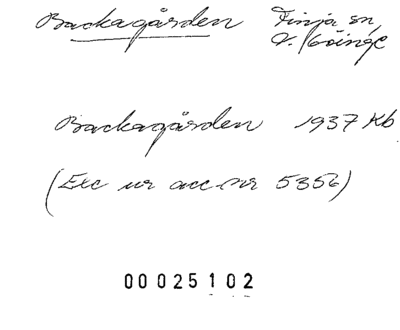 Backagården Finja sn,
V. Göinge
Backagården 1937 Kb
(Exc ur acc. nr 5356)
00025102